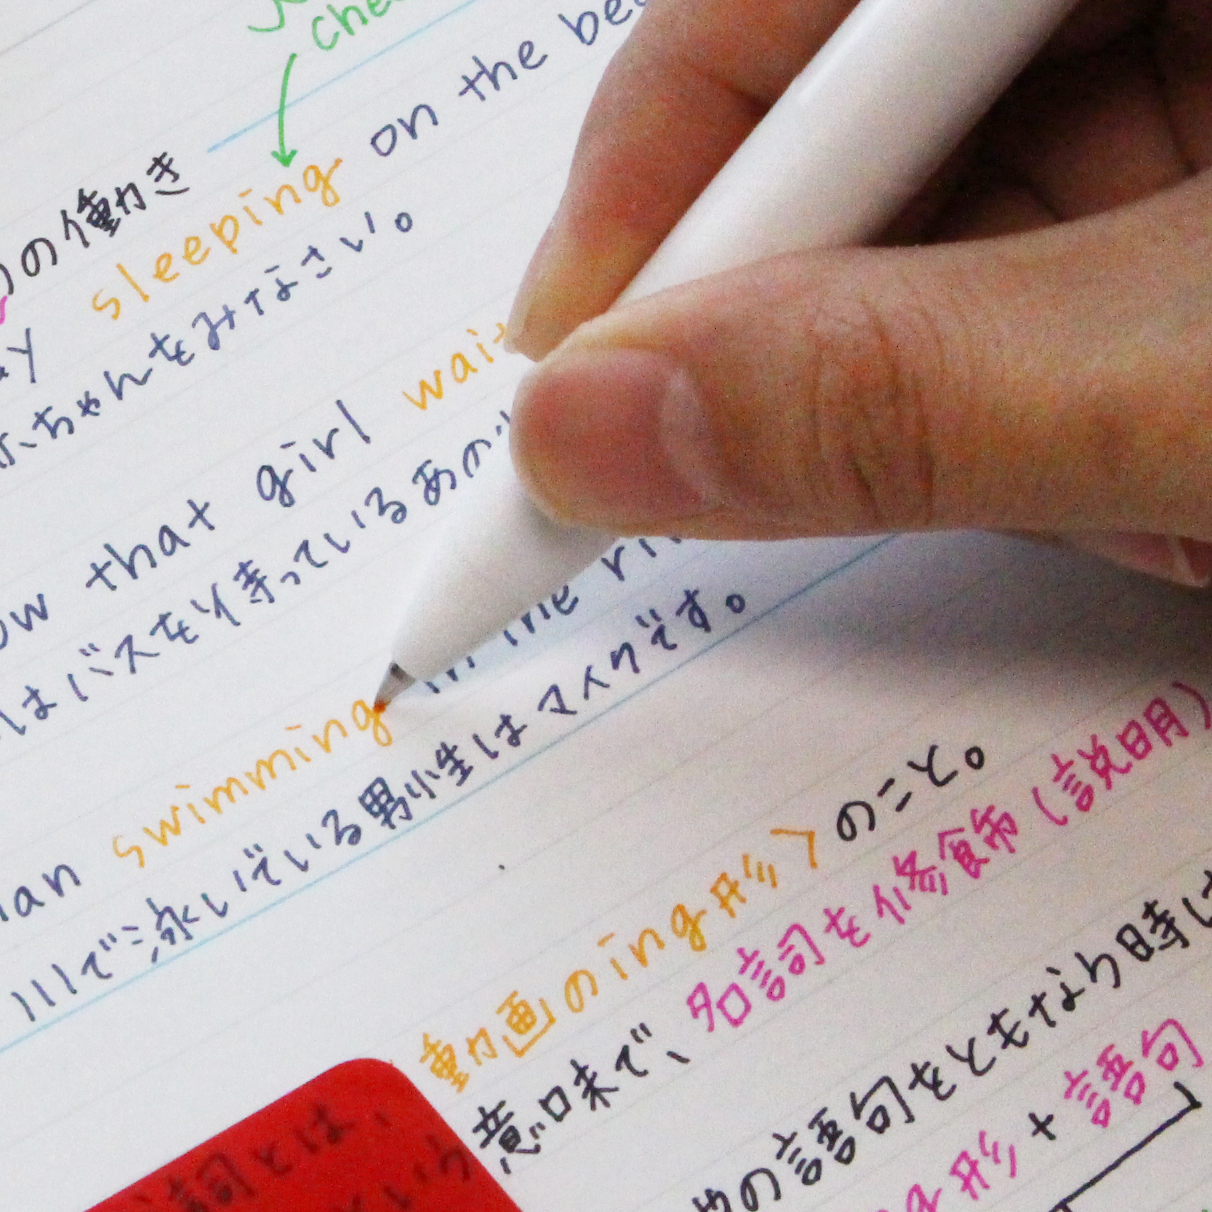 の働き
sleeping on the
ちゃんをみなさい。
that girl
はバスを待っているあの
swimming in the
川で泳いでいる男性はマイクです。
動画のing形〉のこと。
詞とは、
という意味で、名詞を修飾(説明)
の語句をともなう時は
形 + 語句